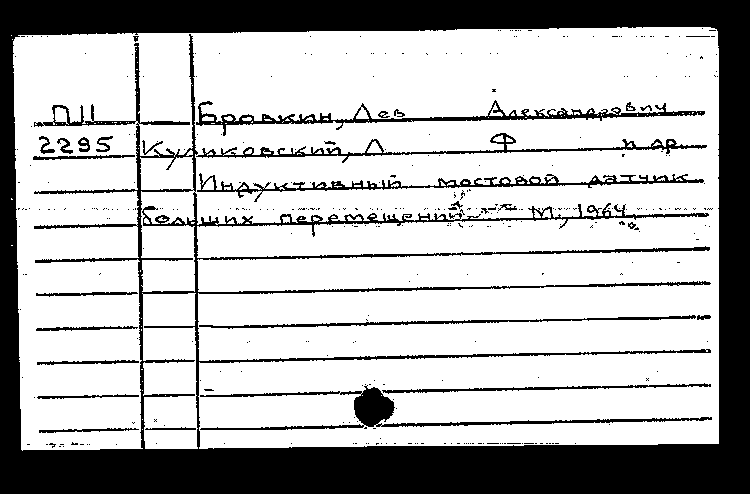 П11 Бровкин, Лев Александрович
2295 Куликовский, Л Ф и др.
Индуктивный мостовой датчик
больших перемещений. — М., 1964.